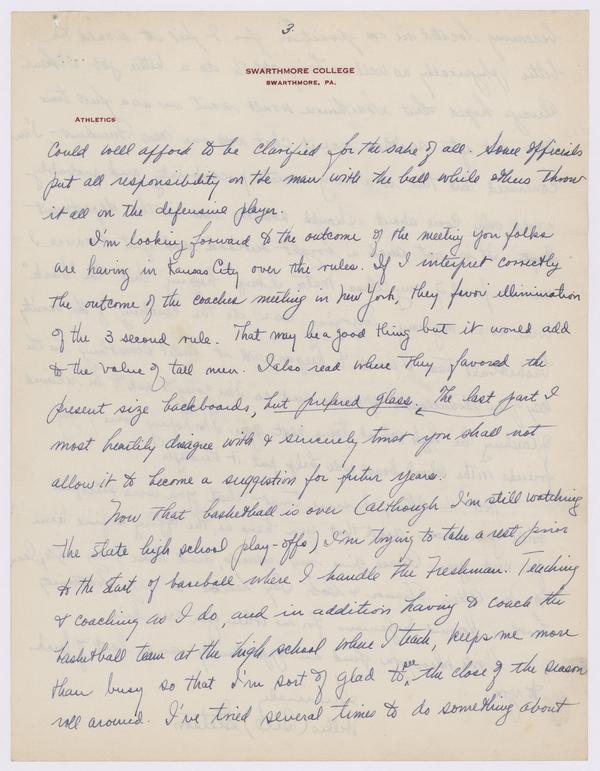 3.
SWARTHMORE COLLEGE
SWARTHMORE, PA.
ATHLETICS
could well afford to be clarified for the sake of all. Some officials
put all responsibility on the man with the ball while others throw
it all on the defensive player.
I'm looking forward to the outcome of the meeting you folks
are having in Kansas City over the rules. If I interpret correctly
the outcome of the coaches meeting in New York, they favor illimination
of the 3 second rule. That may be a good thing but it would add
to the value of tall men. I also read where they favored the
present size backboards, but prefered glass. The last part I
most heartily disagree with & sincerely trust you shall not
allow it to become a suggestion for futur years.
Now that basketball is over (although I'm still watching
the state high school play-offs) I'm trying to take a rest prior
to the start of baseball where I handle the Freshman. Teaching
& coaching as I do, and in addition having to coach the
basketball team at the high school where I teach, keeps me more
than busy so that I'm sort of glad to see the close of the season
roll around. I've tried several times to do something about